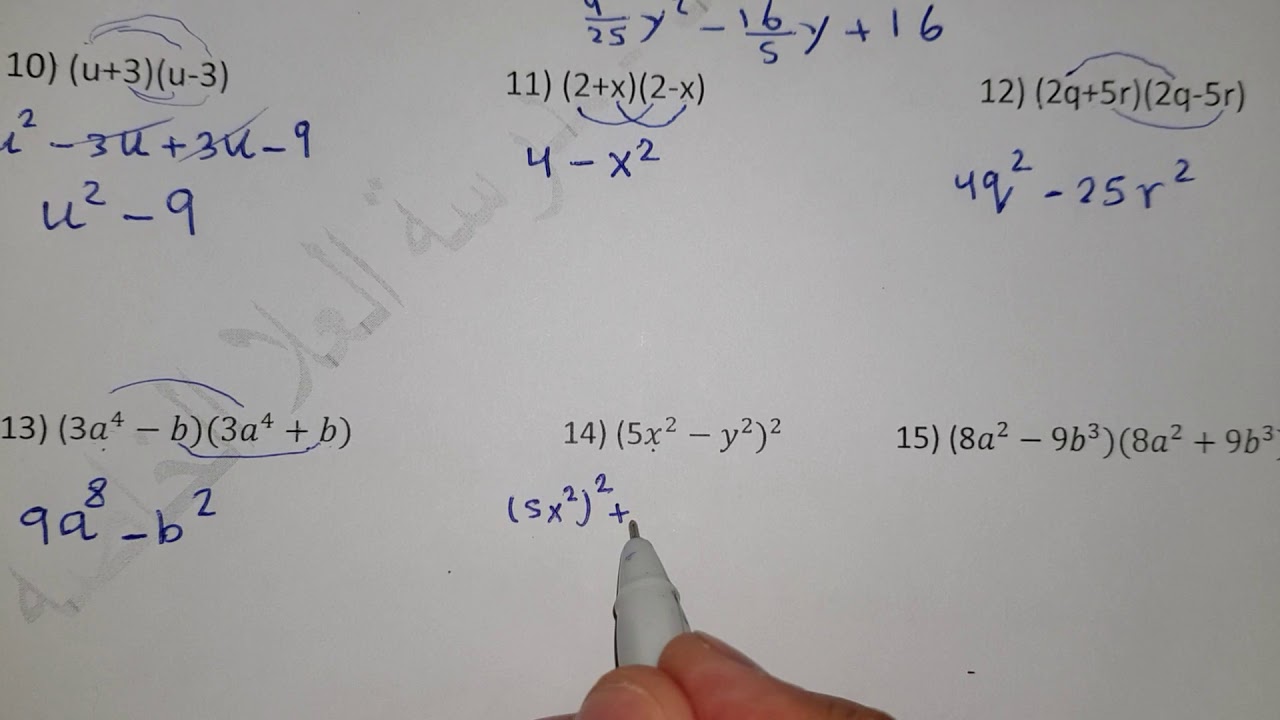 /25 y² - 16/5 y + 16
10) (u+3)(u-3)
u² - 3u + 3u - 9
u² - 9
11) (2+x)(2-x)
4 - x²
12) (2q+5r)(2q-5r)
4q² - 25r²
13) (3a⁴ − b)(3a⁴ + b)
9a⁸ - b²
14) (5x² − y²)²
(5x²)² +
15) (8a² − 9b³)(8a² + 9b³
مدرسة العلا الخاصة